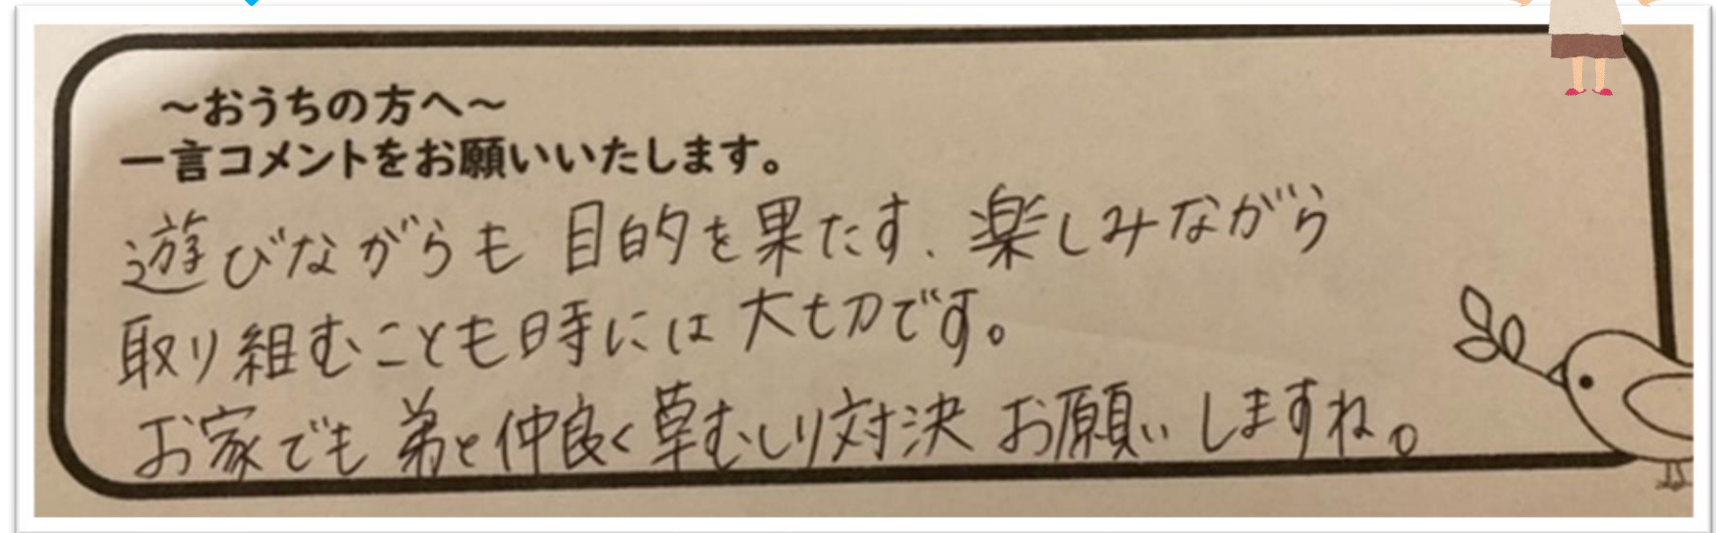 ～おうちの方へ～
一言コメントをお願いいたします。
遊びながらも 目的を果たす、楽しみながら
取り組むことも時には 大切です。
お家でも 弟と仲良く草むしり対決 お願いしますね。